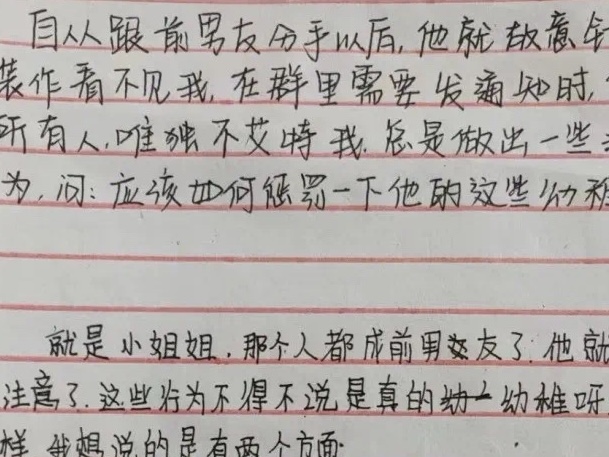 自从跟前男友分手以后，他就故意针
装作看不见我，在群里需要发通知时，
所有人，唯独不艾特我，总是做出一些
为，问：应该如何惩罚一下他的这些幼稚
就是小姐姐，那个人都成前男友了，他就
注意了，这些行为不得不说是真的幼稚呀
样，我想说的是有两个方面：